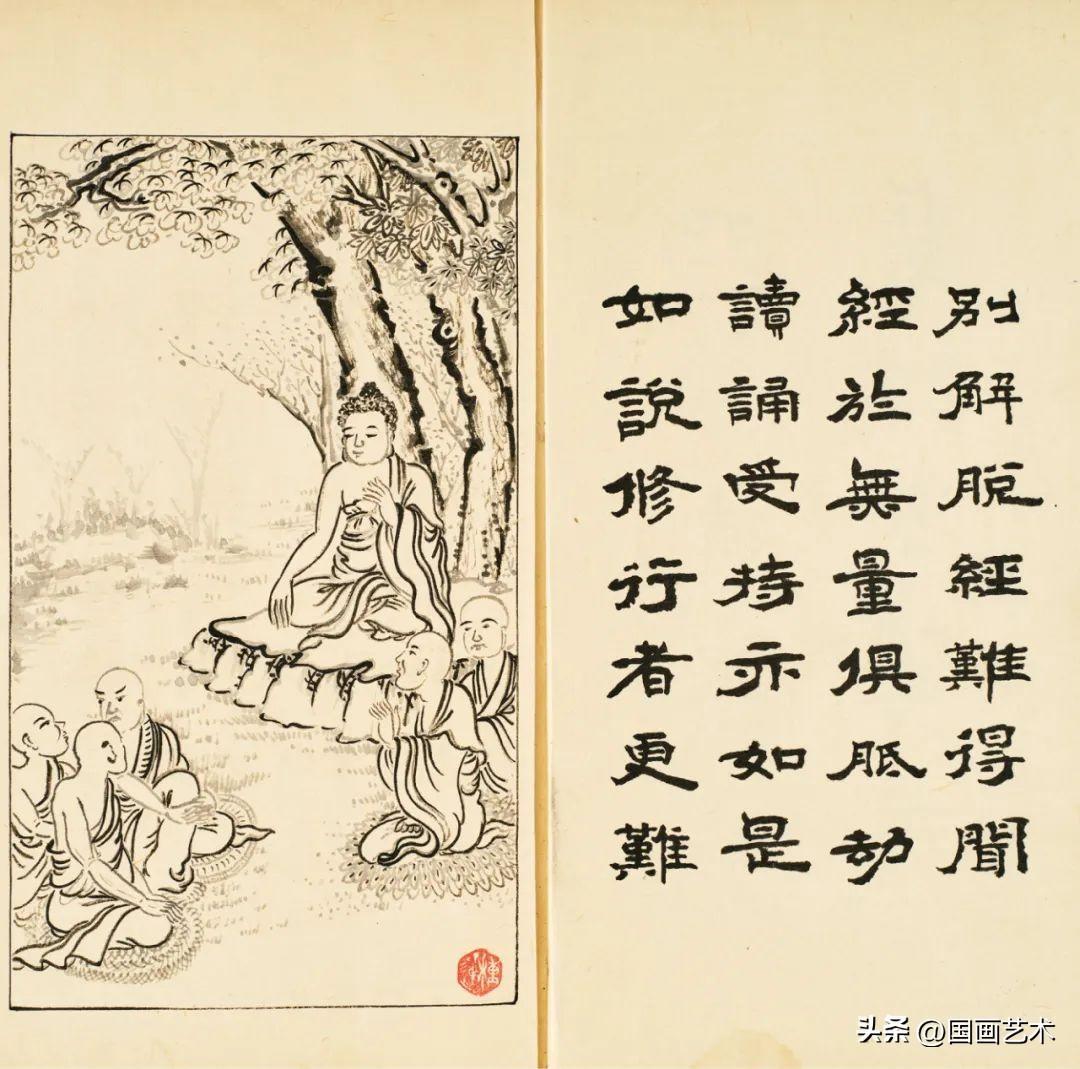 别解脱經難得聞
經於無量俱胝劫
讀誦受持亦如是
如說修行者更難
头条 @国画艺术